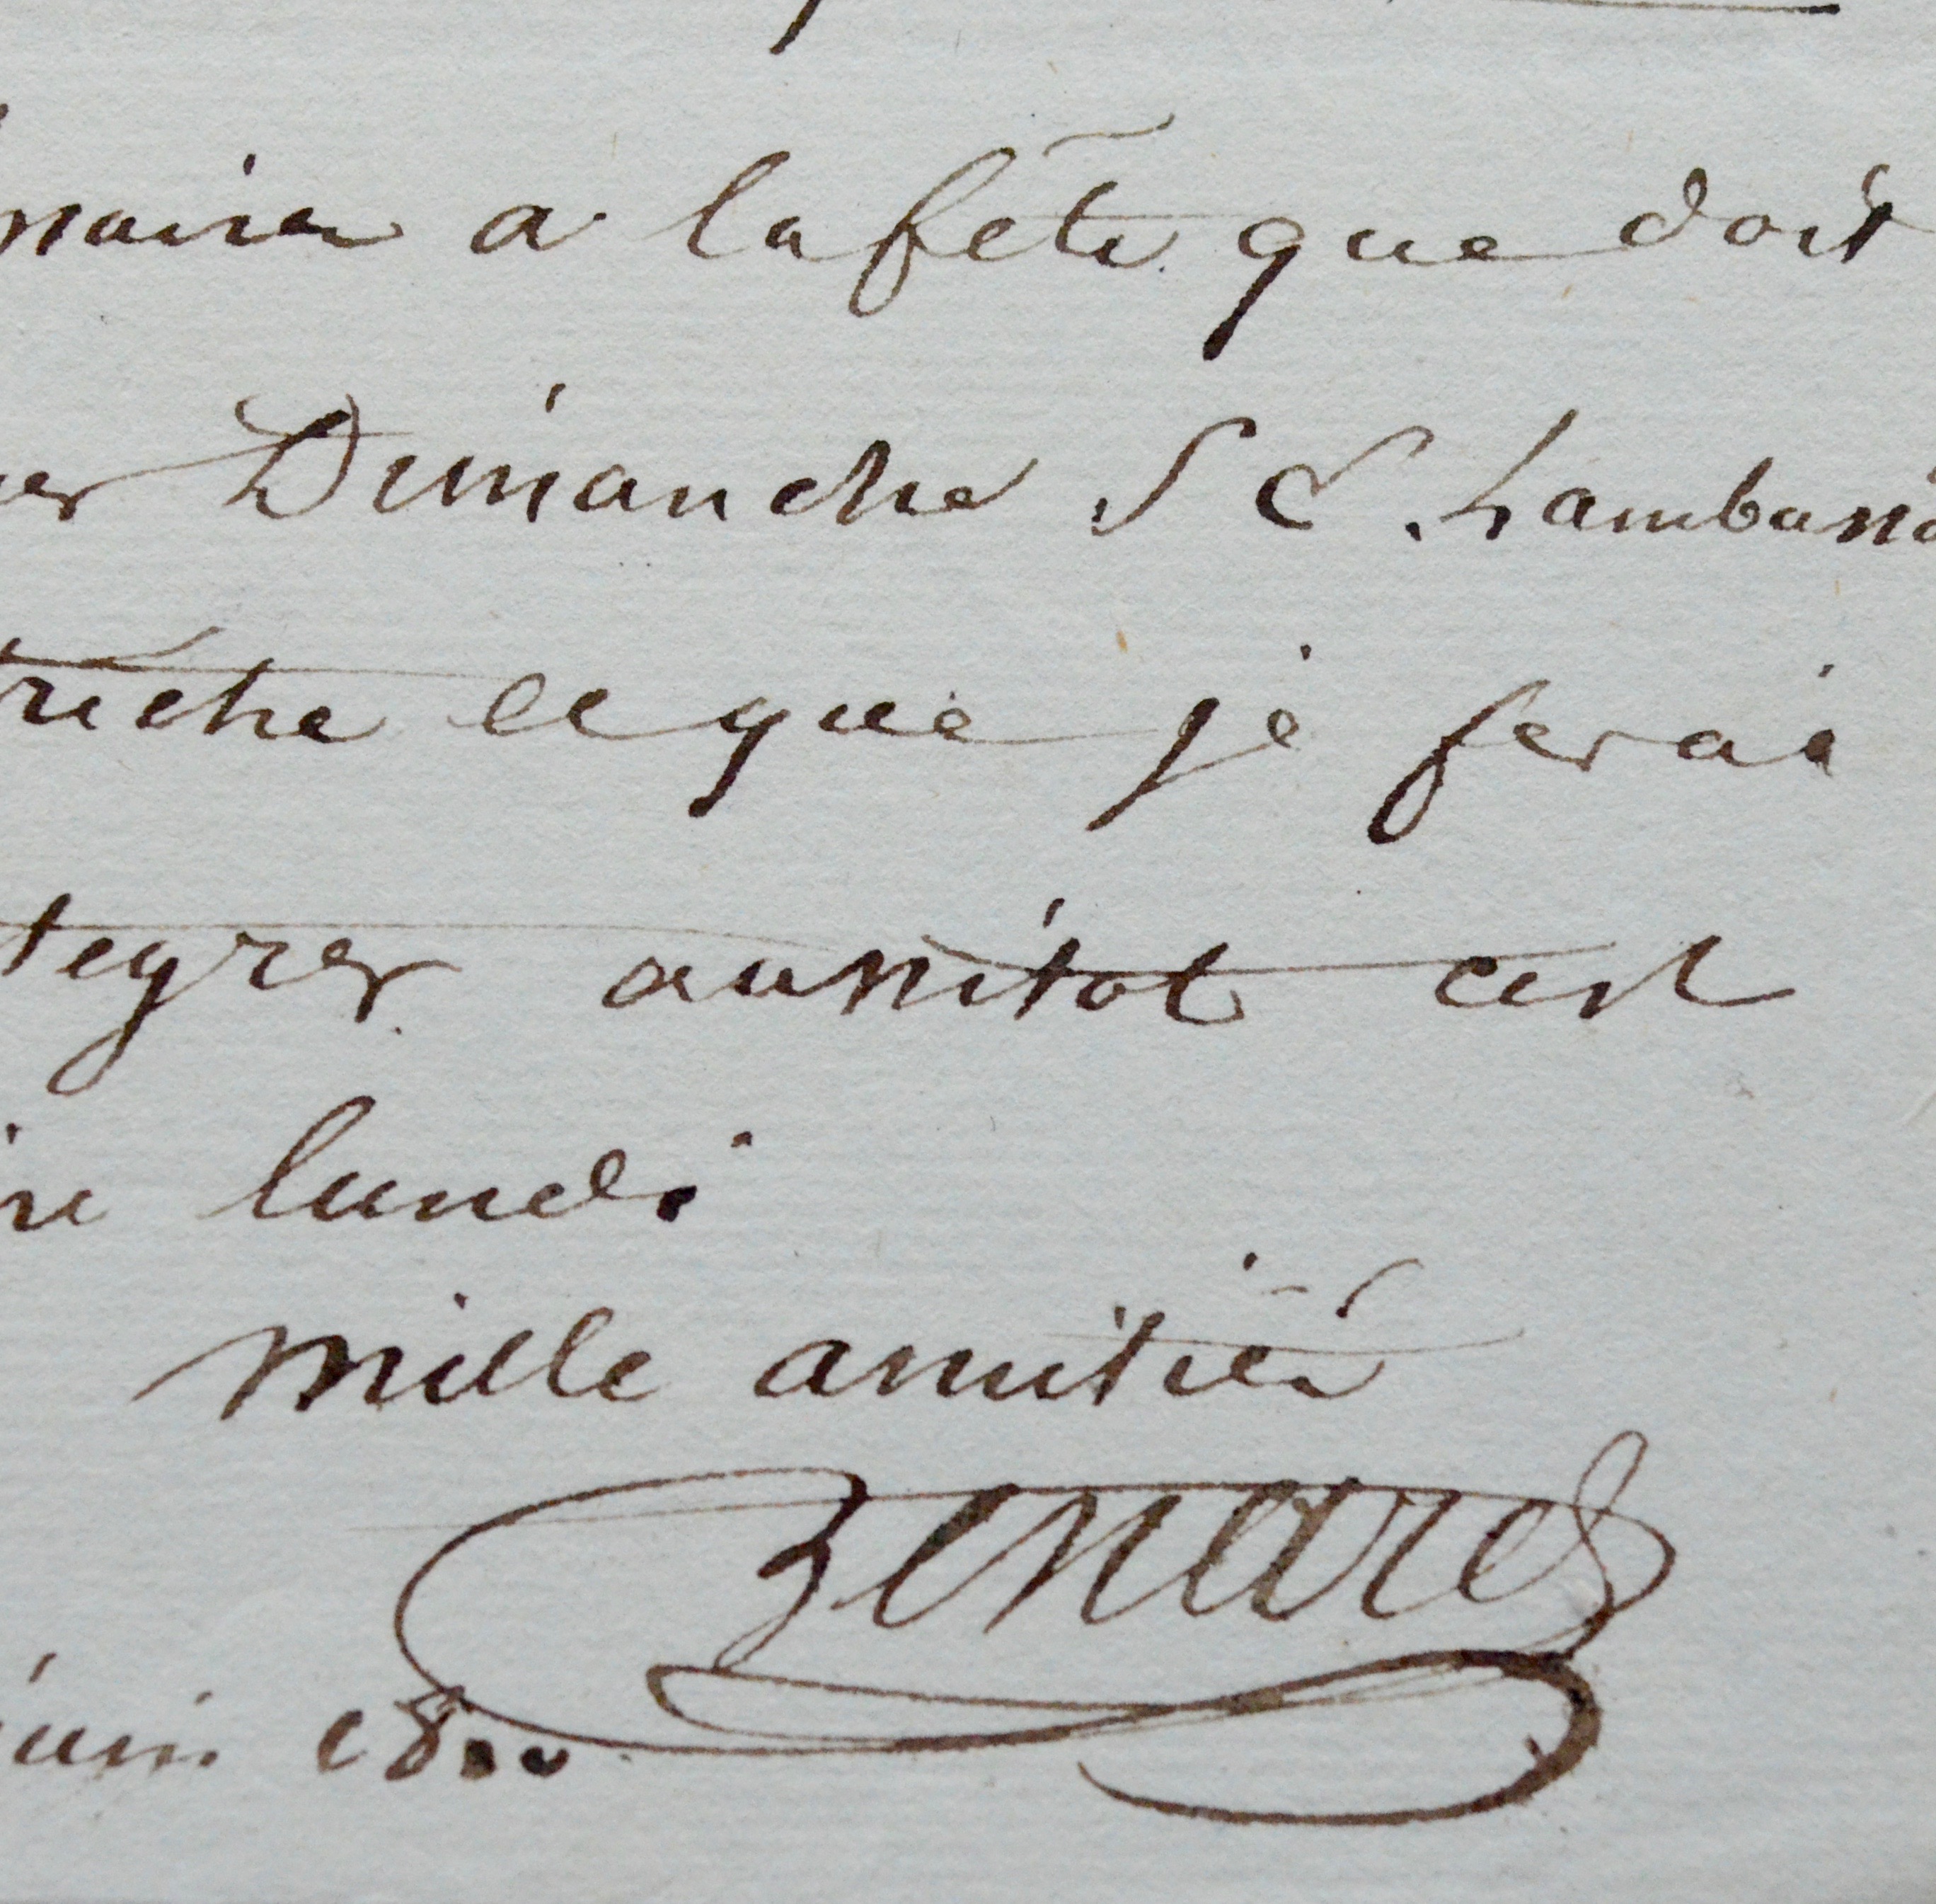 naires a la fête que doit
er Dimanche S E. L'ambassa
triche ce que je ferai
tegrer aussitot cest
ire lundi
mille amitiés
Benard
juin 1800